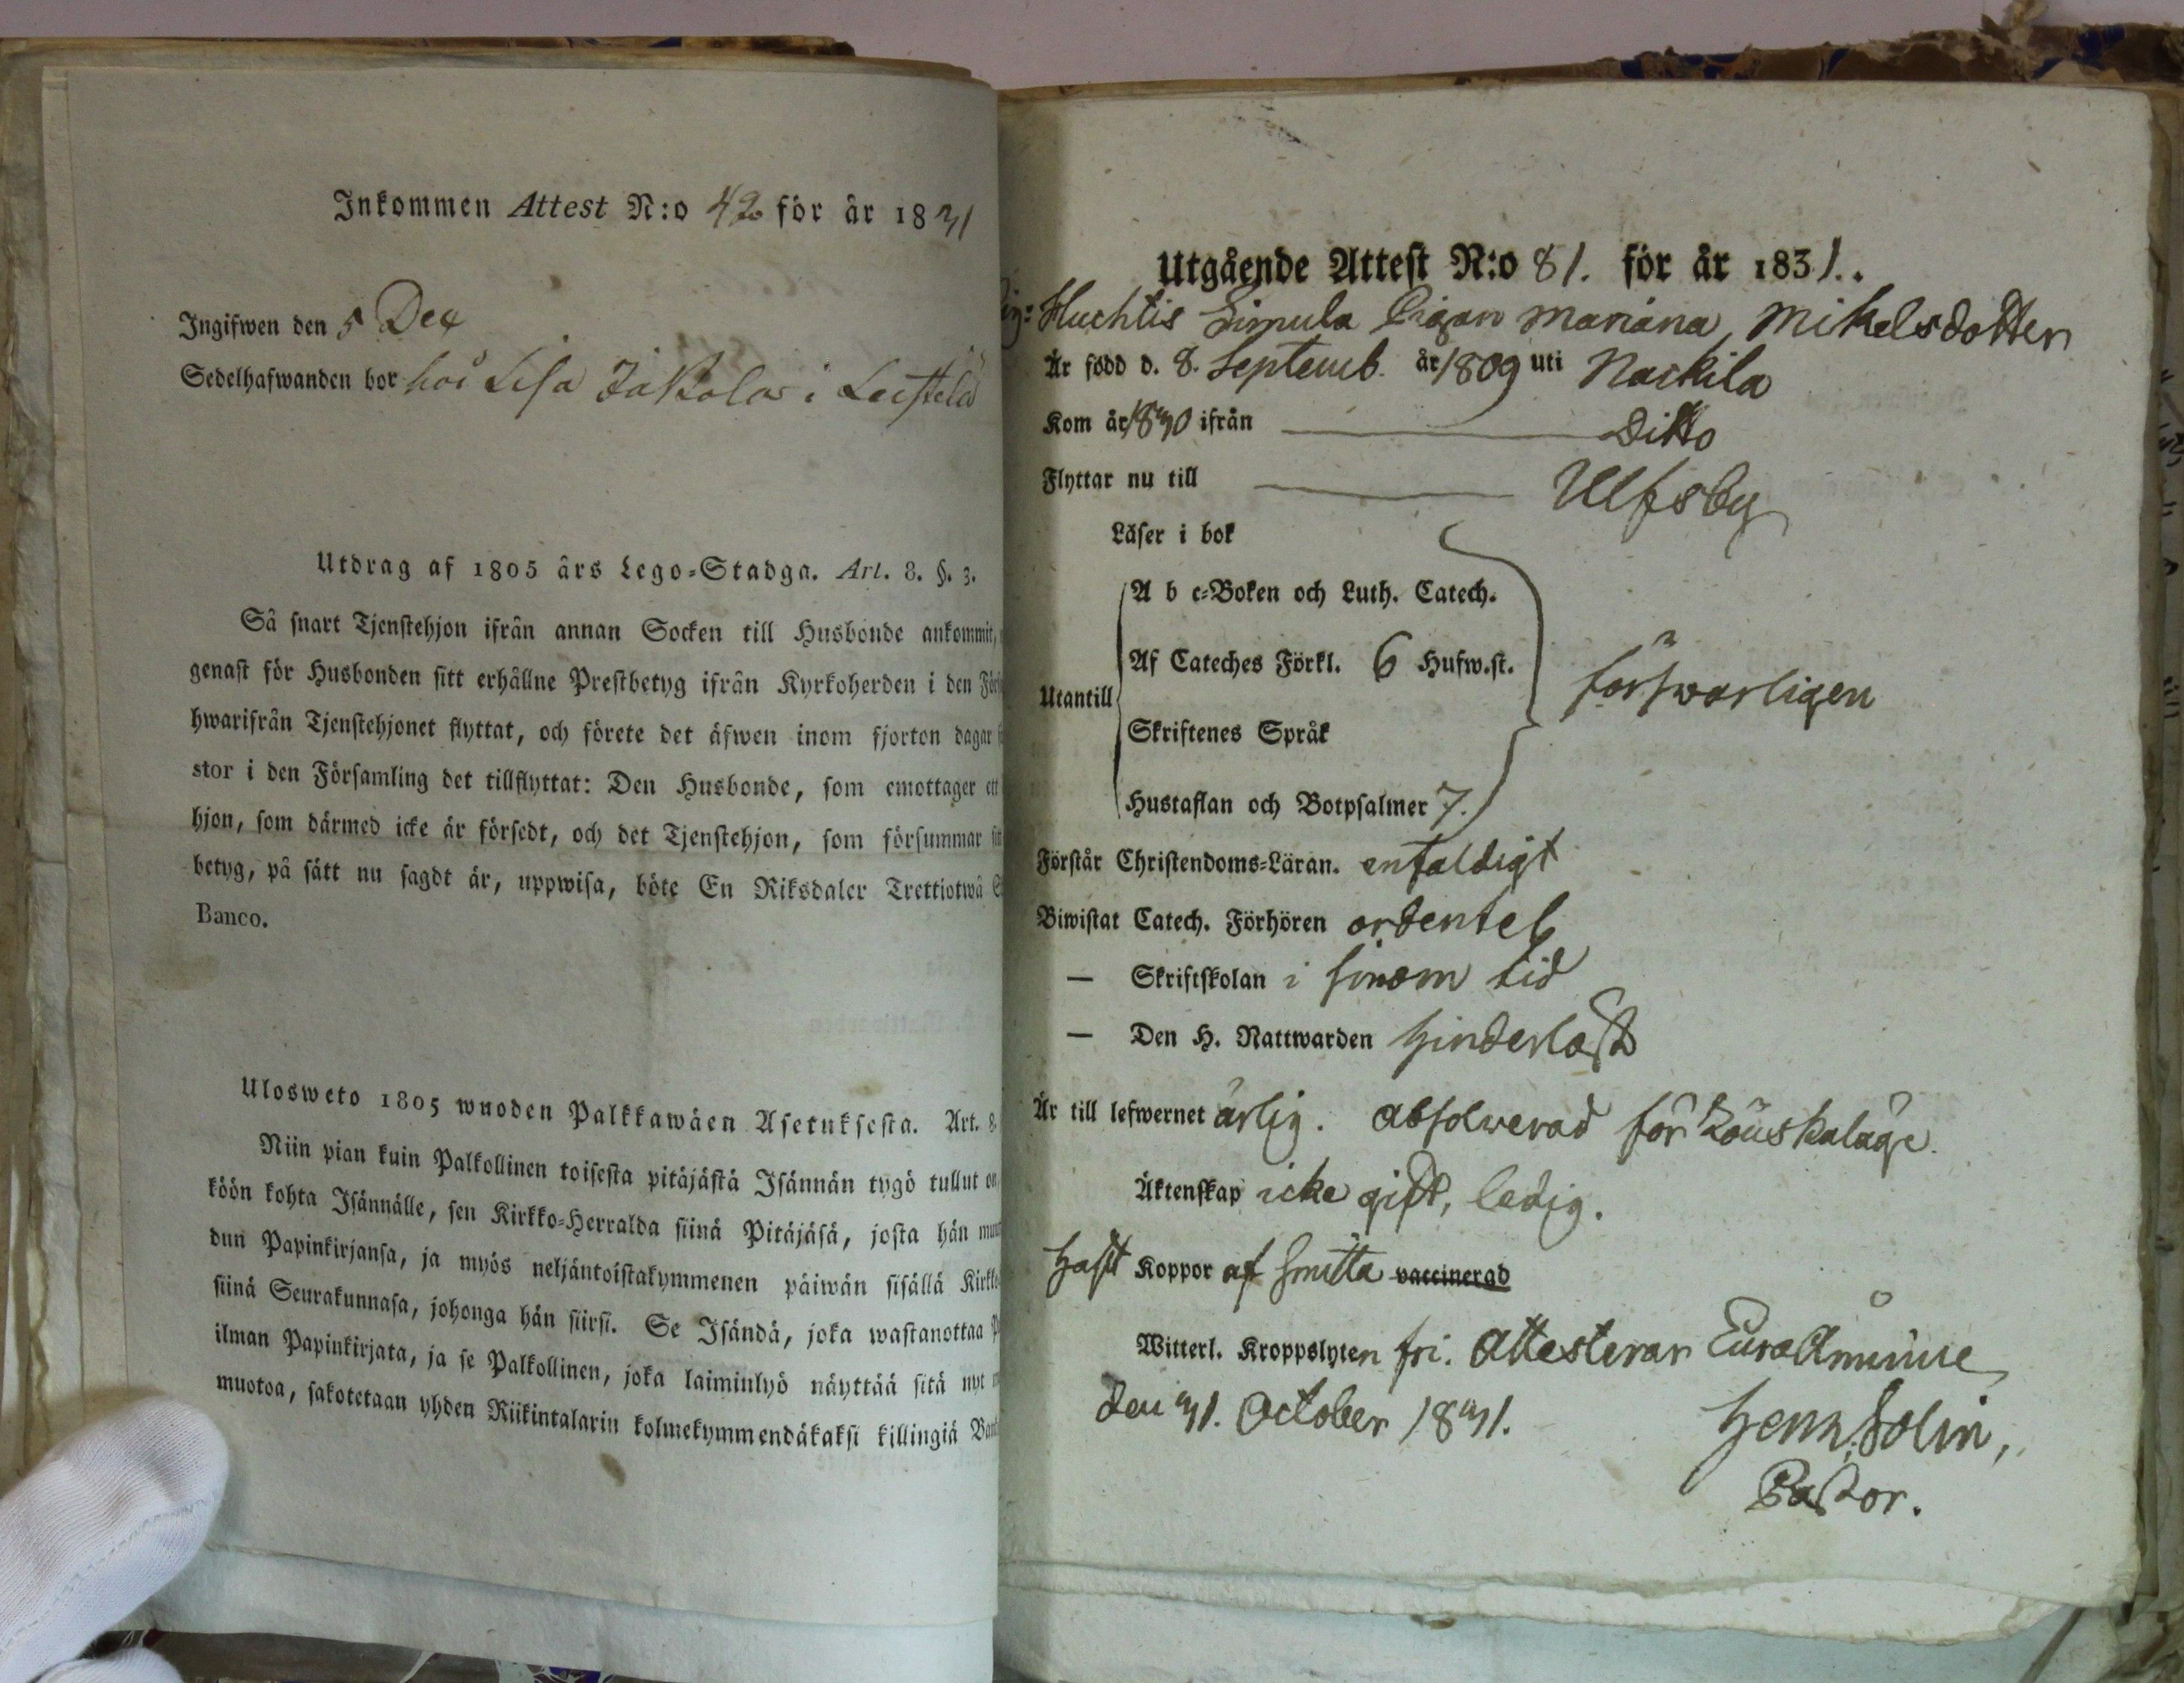 Inkommen Attest N:o 42 för år 1831
Ingifwen den 5 Dec
Sedelhafwanden bor hos Lisa Jakolas i
Utdrag af 1805 års Lego-Stadga. Art. 8. §. 3.
Så snart Tjenstehjon ifrån annan Socken till Husbonde ankommit,
genast för Husbonden sitt erhållne Prestbetyg ifrån Kyrkoherden i den
hwarifrån Tjenstehjonet flyttat, och förete det äfwen inom fjorton dagar
stor i den Församling det tillflyttat: Den Husbonde, som emottager ett
hjon, som därmed icke är försedt, och det Tjenstehjon, som försummar
betyg, på sätt nu sagdt är, uppwisa, böte En Riksdaler Trettiotwå
Banco.
Ulosweto 1805 wuoden Palkkawäen Asetuksesta. Art. 8.
Niin pian kuin Palkollinen toisesta pitäjästä Isännän tygö tullut on
köön kohta Isännälle, sen Kirkko-Herralda siinä Pitäjäsä, josta hän
dun Papinkirjansa, ja myös neljäntoistakymmenen päiwän sisällä
siinä Seurakunnasa, johonga hän siirsi. Se Isändä, joka wastanottaa
ilman Papinkirjata, ja se Palkollinen, joka laiminlyö näyttää sitä nyt
muotoa, sakotetaan yhden Riikintalarin kolmekymmendäkaksi killingiä
Utgående Attest N:o 81. för år 1831.
Huchtis Simula Pigan Mariana Mikelsdotter
Är född d. 8. Septemb. år 1809 uti Nackila
Kom år 1830 ifrån Ditto
Flyttar nu till Ulfsby
Läser i bok
A b c-Boken och Luth. Catech.
Af Cateches Förkl. 6 Hufw.st.
Utantill
försvarligen
Skriftenes Språk
Hustaflan och Botpsalmer 7.
Förstår Christendoms-Läran. enfaldigt
Biwistat Catech. Förhören ordentel
— Skriftskolan i sinom tid
— Den H. Nattwarden hinderlöst
Är till lefwernet ärlig. absolverad för Löuskaläge.
Äktenskap icke gift, ledig.
haft Koppor af smitta vaccinerad
Witterl. Kroppslyten fri. Attesterar Eura Åminne
den 31. October 1831.
Henr. Solin,
Pastor.